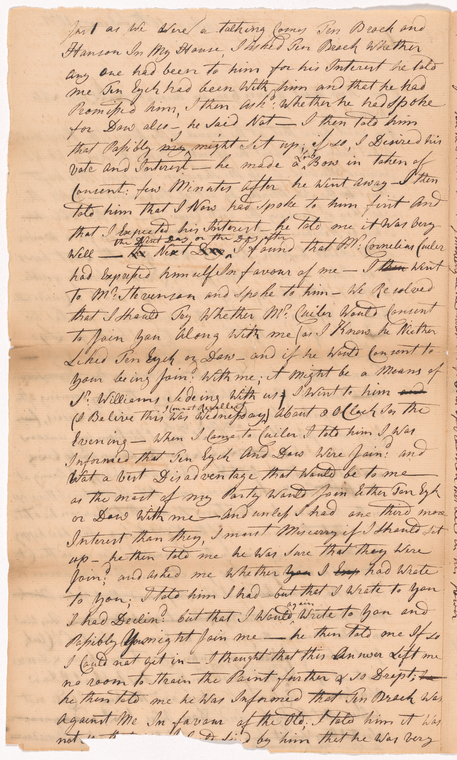 for I as we were a talking Comes Ten Broek and
Hanson In My House, I asked Ten Broek Whether
any one had been to him for his Interest he told
me Ten Eyck had been With him and that he had
Promissed him, I then ask'd Whether he had Spoke
for Dow also - he Said Not - I then told him
that Possibly my might Set up, if so, I Desired his
Vote and Interest - he made a Bow in taken of
Consent: few Minutes after he Went away - I then
told him that I Now had spoke to him first And
that I Expected his Interest, he told me it Was Very
the Next Day or the Day after
Well - Next I found that Mr. Cornelius Cuiler
had Expressed himself In favour of me - I then Went
to Mr. Stevenson and Spoke to him - We Resolved
that I Should Try Whether Mr. Cuiler Would Consent
to Join you Along With me (as I Know he Neither
Liked Ten Eyck or Dow - and if he Would Consent to
Your being Join'd With me, it Might be a Means of
Sr. Williams Sideing With us; I Went to him and
(most Possible)
(I Belive this Was Wednesday) about 8 OClock In the
Evening - When I Came to Cuiler I told him I Was
Informed that Ten Eyck And Dow Were Join'd and
Wat a Vest Disadvantage that Would be to me
as the most of my Party Would Join Either Ten Eyk
or Dow With me - and unless I had one third more
Interest than they, I must Miscarry if I Should Set
up - he then told me he Was Sure that they Were
Join'd and asked me Whether you I had Wrote
to you; I told him I had - but that I Wrote to You
again
I had Declin'd but that I Would Write to You and
Possibly You might Join me - he then told me If so
I Could not get in - I thought that this Answer Left me
no room to Strain the Point further & so Dropt;
he then told me he Was Informed that Ten Broek Was
against Me In favour of the Old, I told him it Was
not so by him that he was Very